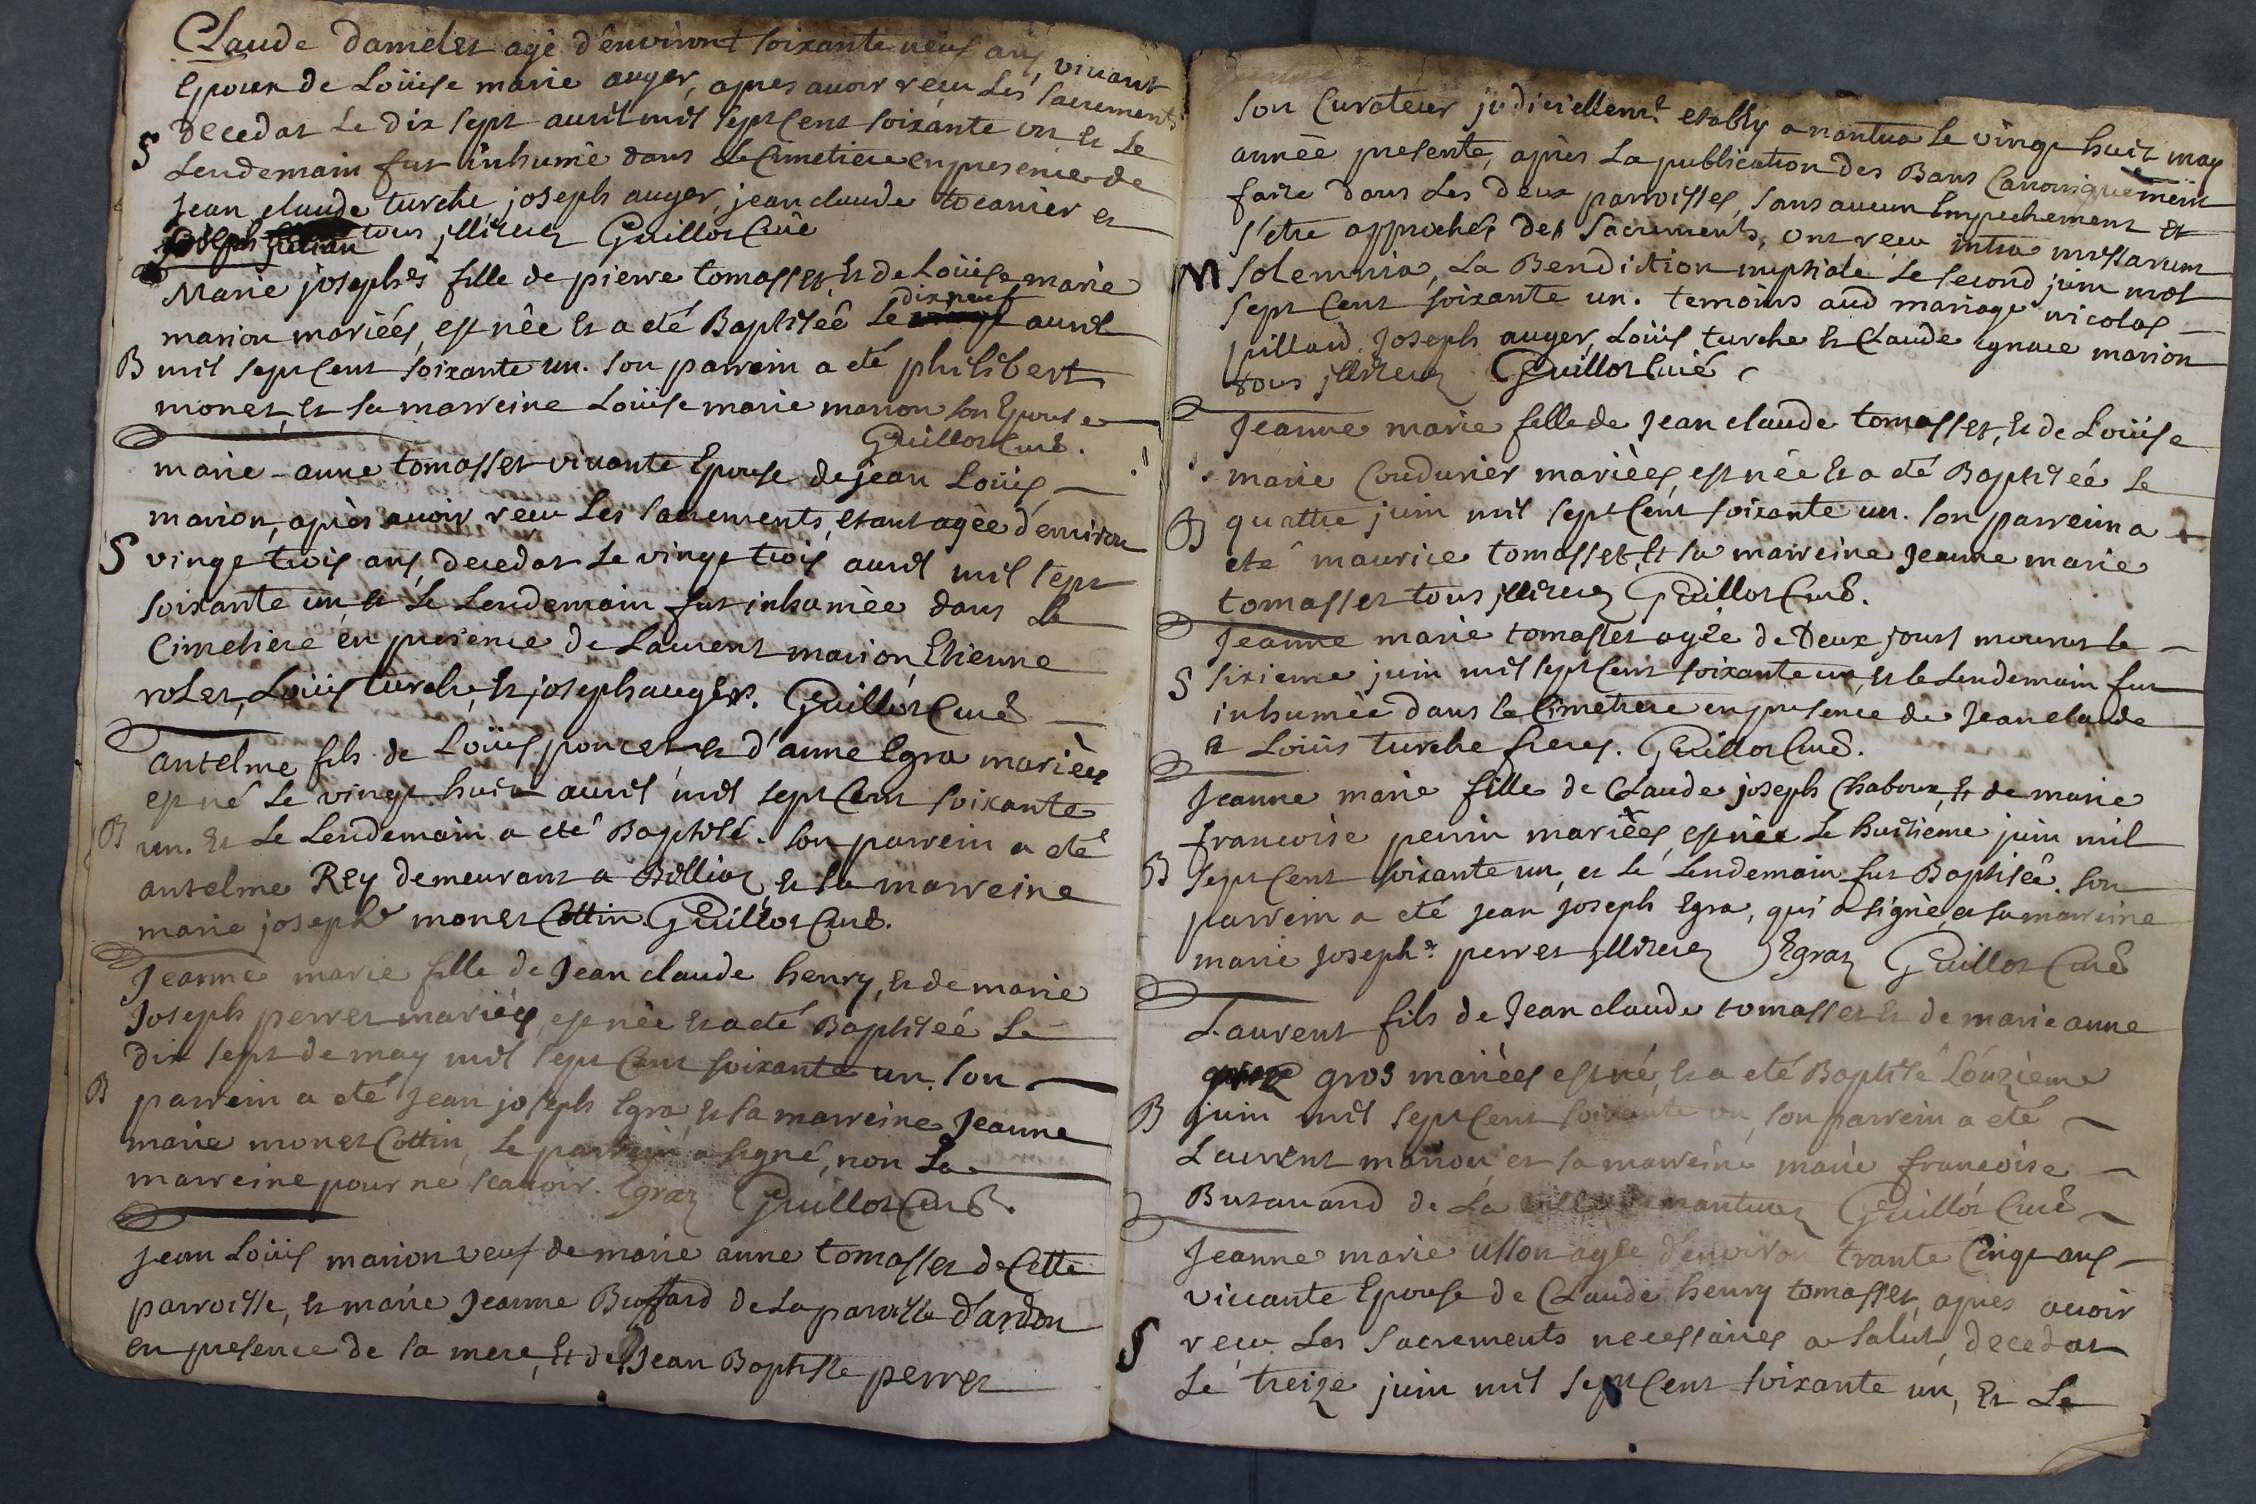 Claude damelet agé d'environt soixante neuf ans, vivant
Epoux de Loüise marie auger, apres avoir recu Les sacrements
S decedat Le dix sept avril mil sept Cent soixante un et Le
Lendemain fut inhumé dans Le Cimetiere en presence de
jean claude turche, joseph auger, jean claude tocanier et
joseph tous illiterez Guillot Curé
Marie joseph.e fille de pierre tomasset, et de Loüise marie
marion mariéés, est née et a eté Baptiséé Le dix neuf avril
B mil sept Cent soixante un. son parrein a eté philibert
monet, et sa marreine Loüise marie marion son Epouse
Guillot Curé.
marie-anne tomasset vivante Epouse de jean Loüis
marion, après avoir recu Les sacrements, etant agèe d'environ
S vingt trois ans, decedat Le vingt trois avril mil sept
soixante un et Le Lendemain fut inhumèe dans Le
Cimetiere en presence de Laurent marion, Etienne
rolet, Loüis turche, et joseph auger. Guillot Curé
antelme fils de Loüis poncet, et d'anne Egra mariées
est né Le vingt huit avril mil sept Cent soixante
B un. et Le Lendemain a eté Baptisé. son parrein a eté
antelme Rey demeurant a Billiaz, et sa marreine
marie joseph.e monet Cottin. Guillot Curé.
Jeanne marie fille de Jean claude henry, et de marie
Joseph perret mariéés, est née et a eté Baptiséé Le
dix sept de may mil sept Cent soixante un. son
B parrein a eté Jean joseph Egra, et sa marreine Jeanne
marie monet Cottin, Le parrein a signé, non La
marreine pour ne scavoir. Egraz Guillot Curé.
jean Loüis marion veuf de marie anne tomasset de Cette
parroisse, et marie Jeanne Buffard de La parroisse d'ardon
en presence de sa mere, et de Jean Baptiste perret
son Curateur judiciellem.t etably a nantua Le vingt huit may
année presente, après La publication des Bans Canoniquement
faite dans Les deux parroisses, sans aucun Empechement et
s'etre approchés des Sacrements, ont recu intra missarum
M solemnia, La Bendiction nuptiale Le second juin mil
sept Cent soixante un. temoins aud mariage nicolas
juillard, Joseph auger, Loüis turche et Claude ignace marion
tous illiterez Guillot Curé
Jeanne marie fille de Jean claude tomasset, et de Loüise
marie Coudurier mariéés, est née et a eté Baptiséé Le
B quattre juin mil sept Cent soixante un. son parrein a
eté maurice tomasset, et sa marreine Jeanne marie
tomasset tous illiterez Guillot Curé.
Jeanne marie tomasset agèe de Deux jours mourut le
S sixieme juin mil sept Cent soixante un, et le Lendemain fut
inhumée dans le Cimetiere en presence de Jean claude
et Loüis turche freres. Guillot Curé.
Jeanne marie fille de Claude joseph Chaboux, et de marie
francoise perrin mariéés, est née Le huitiéme juin mil
B sept Cent soixante un, et Le Lendemain fut Baptiséé. son
parrein a eté jean joseph Egra, qui a signé, et sa marreine
marie Joseph.e perret illiterez Egraz Guillot Curé
Laurent fils de Jean claude tomasset et de marie anne
gros mariéés est né, et a eté Baptisé L'onzieme
B juin mil sept Cent soixante un, son parrein a eté
Laurent marion et sa marreine marie francoise
Buzavand de La ville de nantuaz Guillot Curé
Jeanne marie usson agèe d'environ trante Cinq ans
vivante Epouse de Claude henry tomasset, apres avoir
S recu Les Sacrements necessaires a salut, decedat
Le treize juin mil sept Cent soixante un, et Le